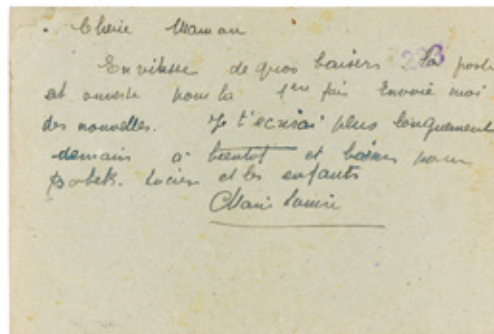 Cherie Maman
En vitesse de gros baisers 223 la poste
est ouverte pour la 1ere fois Envoie moi
des nouvelles. Je t'ecrirai plus longuement
demain à bientot et baisers pour
Lucien et les enfants
Marie Louise